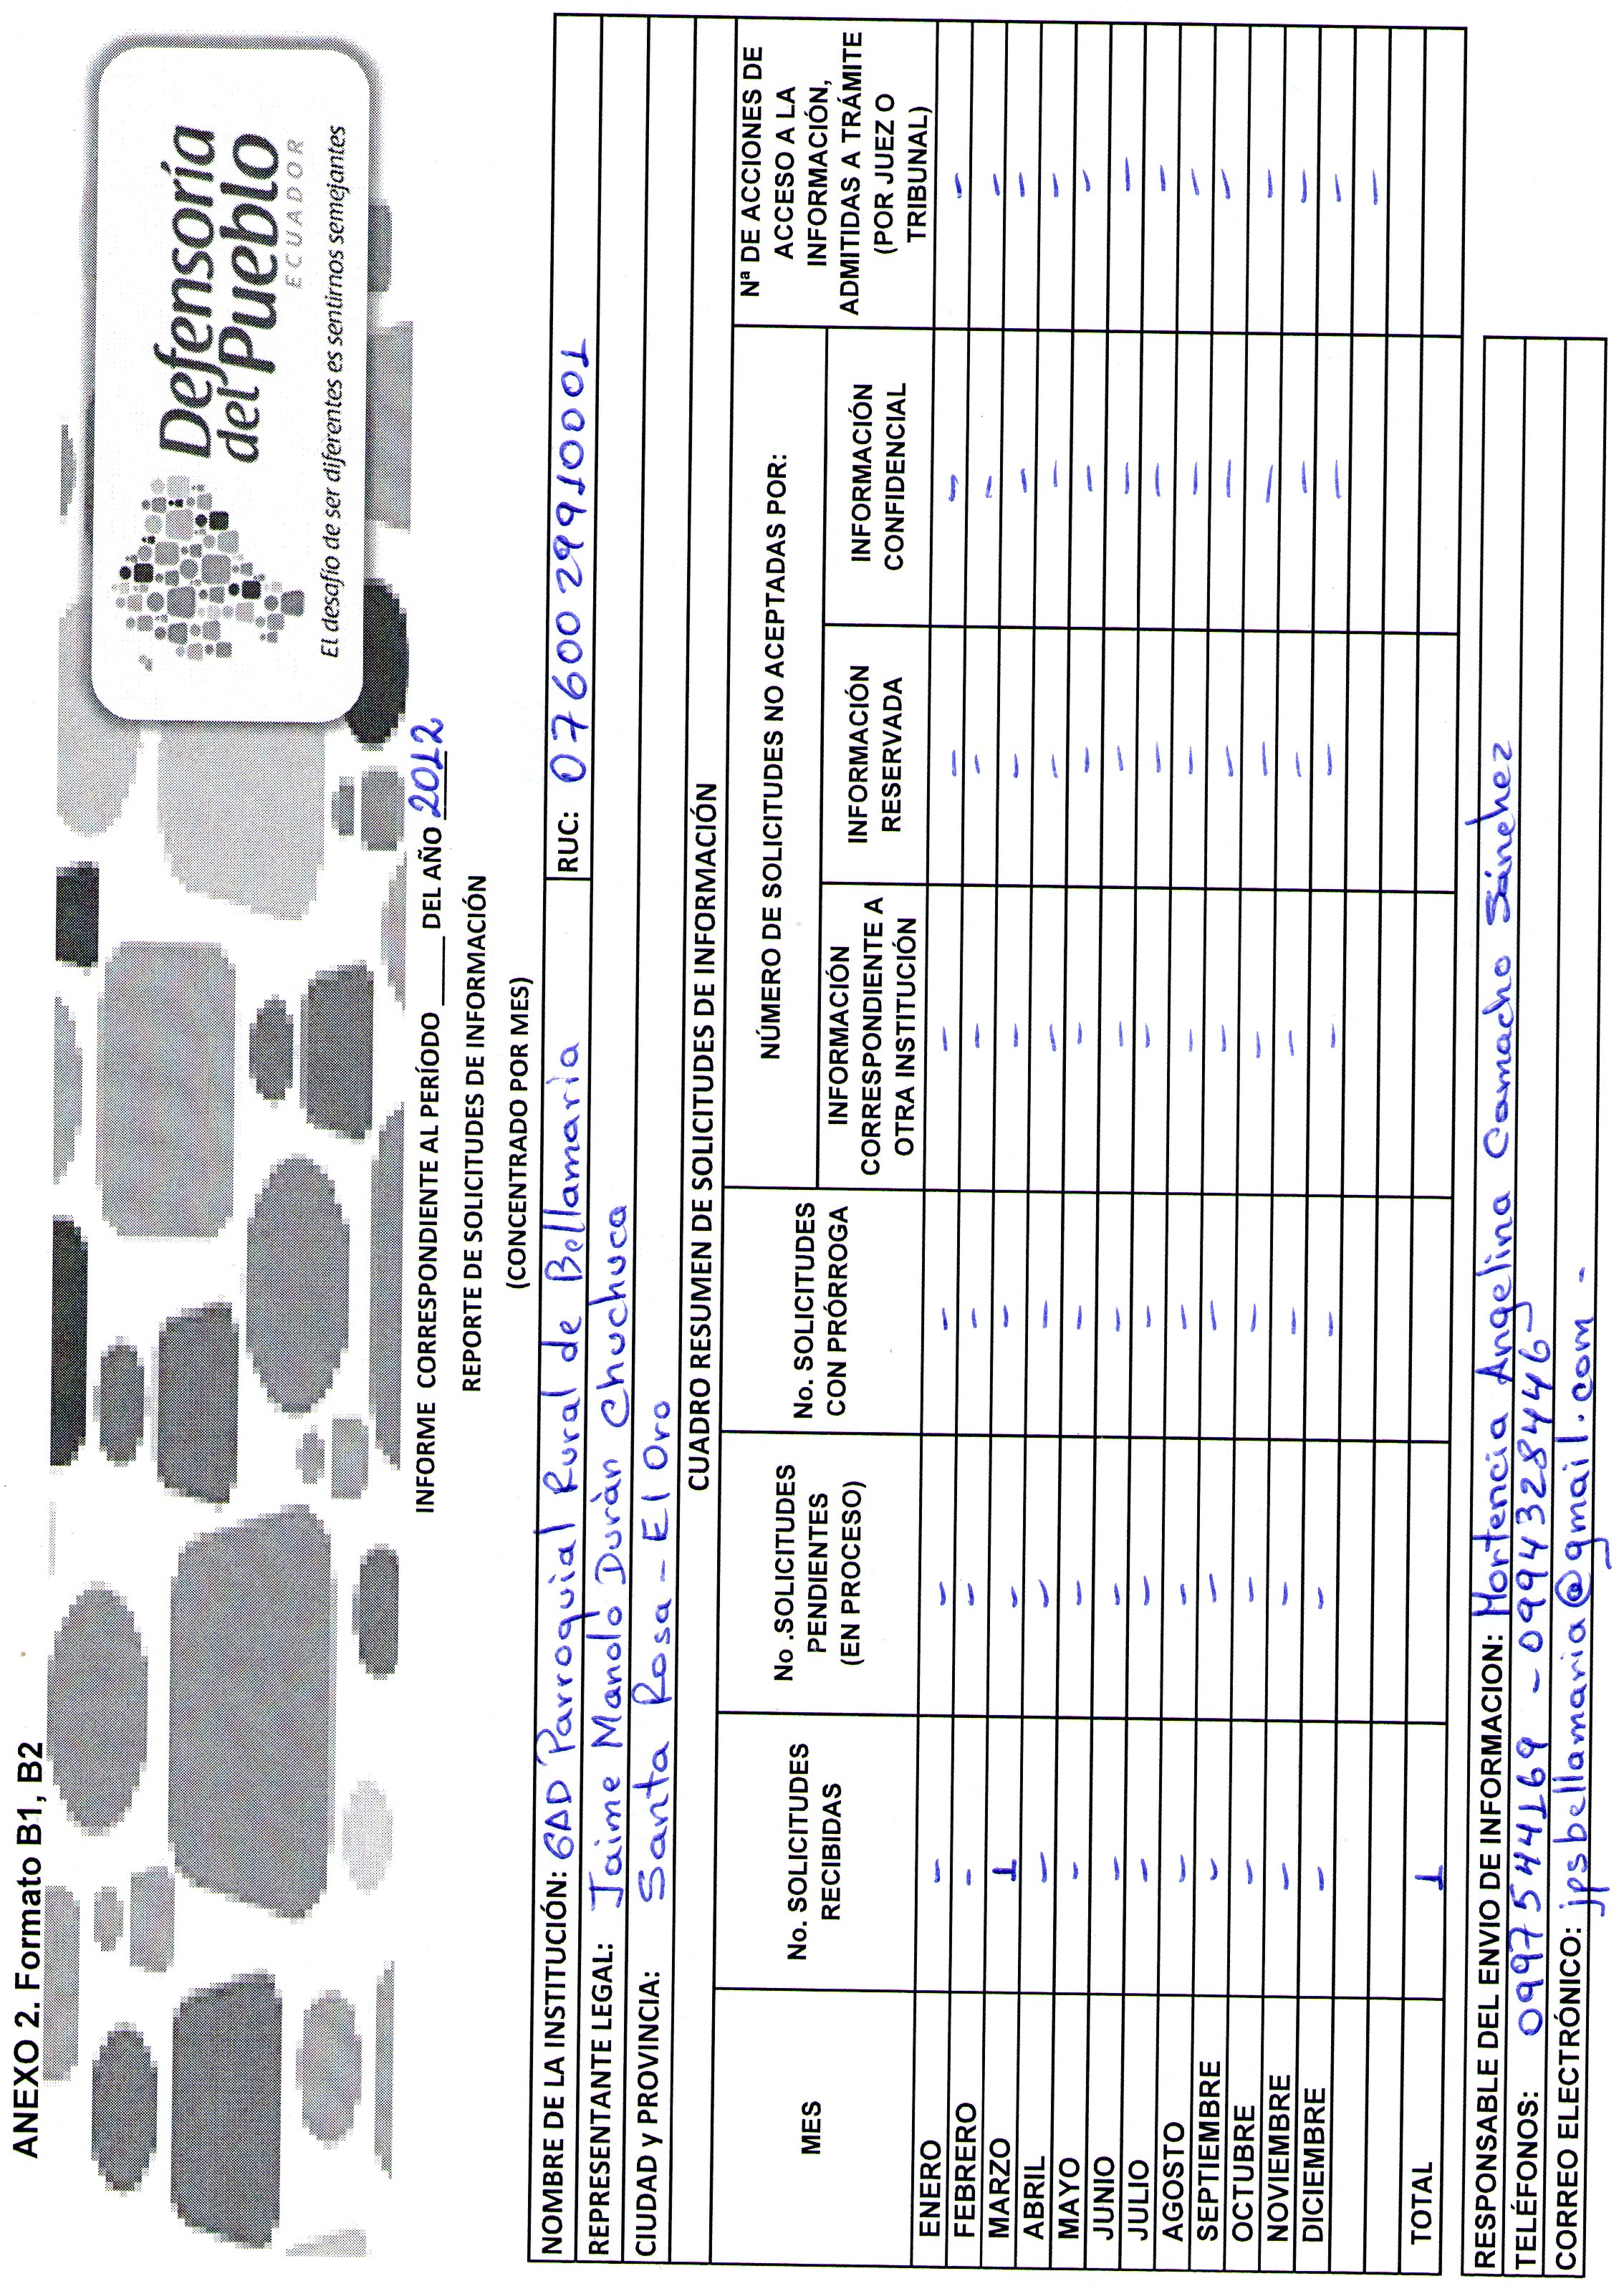 ANEXO 2. Formato B1, B2
Defensoría
del Pueblo
ECUADOR
El desafío de ser diferentes es sentirnos semejantes
INFORME CORRESPONDIENTE AL PERÍODO ____ DEL AÑO 2012
REPORTE DE SOLICITUDES DE INFORMACIÓN
(CONCENTRADO POR MES)
NOMBRE DE LA INSTITUCIÓN: GAD Parroquial Rural de Bellamaría RUC: 0760029910001
REPRESENTANTE LEGAL: Jaime Manolo Duràn Chuchuca
CIUDAD y PROVINCIA: Santa Rosa - El Oro
CUADRO RESUMEN DE SOLICITUDES DE INFORMACIÓN
MES
No. SOLICITUDES
RECIBIDAS
No .SOLICITUDES
PENDIENTES
(EN PROCESO)
No. SOLICITUDES
CON PRÓRROGA
NÚMERO DE SOLICITUDES NO ACEPTADAS POR:
INFORMACIÓN
CORRESPONDIENTE A
OTRA INSTITUCIÓN
INFORMACIÓN
RESERVADA
INFORMACIÓN
CONFIDENCIAL
Nª DE ACCIONES DE
ACCESO A LA
INFORMACIÓN,
ADMITIDAS A TRÁMITE
(POR JUEZ O
TRIBUNAL)
ENERO - - - - - - -
FEBRERO - - - - - - -
MARZO 1 - - - - - -
ABRIL - - - - - - -
MAYO - - - - - - -
JUNIO - - - - - - -
JULIO - - - - - - -
AGOSTO - - - - - - -
SEPTIEMBRE - - - - - - -
OCTUBRE - - - - - - -
NOVIEMBRE - - - - - - -
DICIEMBRE - - - - - - -
-
TOTAL 1
RESPONSABLE DEL ENVIO DE INFORMACION: Hortencia Angelina Camacho Sánchez
TELÉFONOS: 0997544169 - 0994328446-
CORREO ELECTRÓNICO: jpsbellamaria@gmail.com -